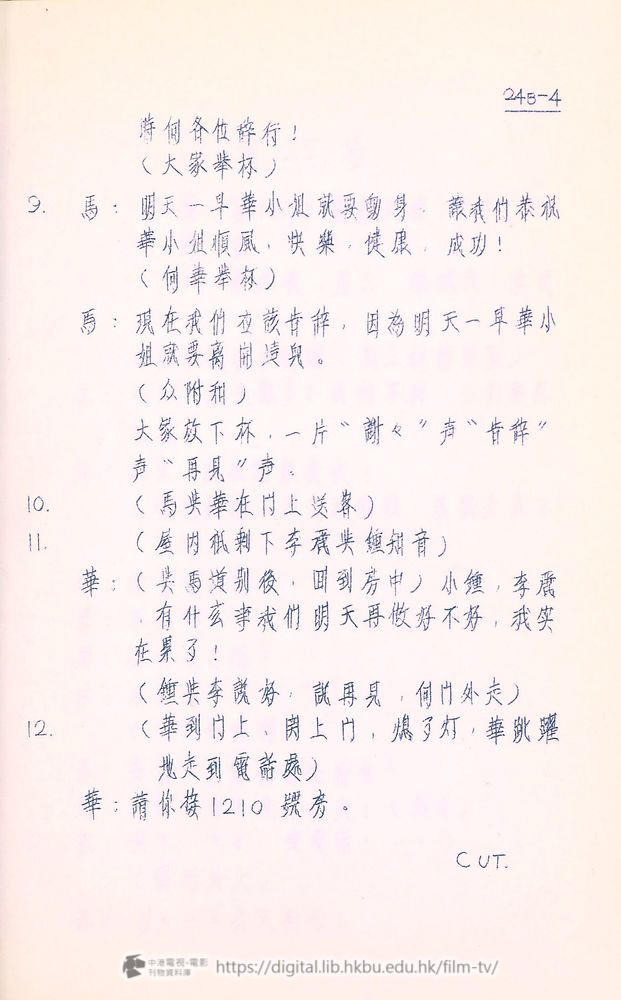 24B-4
時向各位辭行！
（大家舉杯）
9. 馬：明天一早華小姐就要動身，讓我們恭祝
華小姐順風，快樂，健康，成功！
（向華舉杯）
馬：現在我們应該告辞，因為明天一早華小
姐就要离開這兒。
（众附和）
大家放下杯，一片“謝々”声“告辞”
声“再見”声。
10. （馬與華在门上送客）
11. （屋内祇剩下李震與鍾知音）
華：（與馬道别後，回到房中）小鍾，李震
，有什么事我们明天再做好不好，我实
在累了！
（鍾與李説好，説再見，向门外走）
12. （華到门上，関上门，熄了灯，華跳躍
地走到電話處）
華：請你接1210號房。
CUT.
中港電視·電影
刊物資料庫
https://digital.lib.hkbu.edu.hk/film-tv/